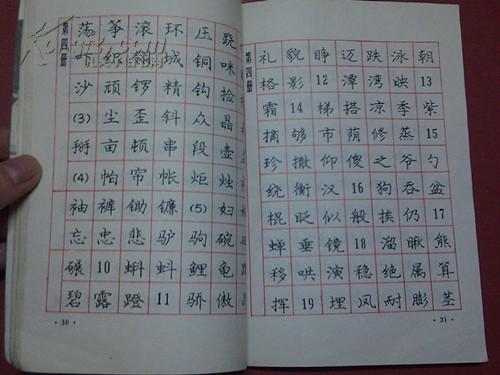 第四册
荡 筝 滚 环 压 跷
叶 纺 翱 城 铜 咪
沙 顽 锣 精 钩 捡
(3) 尘 歪 斜 众 晶
掰 亩 顿 串 段 壶
(4) 帕 帘 帐 炬 烛
袖 裤 锄 镰 (5) 妇
忘 忠 悲 驴 驹 碗
碾 10 蝌 蚪 鲤 龟
碧 露 蹬 11 骄 傲
·30·
第四册
礼 貌 睁 迈 跌 泳 朝
格 影 12 潭 湾 映 13
霜 14 梯 搭 凉 季 紫
摘 够 市 荫 修 蒸 15
珍 撒 仰 傻 之 爷 勺
绕 衡 汉 16 狗 吞 盆
棍 眨 似 般 挨 仍 17
蝉 垂 镜 18 溜 瞅 熊
移 哄 演 稳 绝 属 算
挥 19 埋 风 耐 膨 茎
·31·